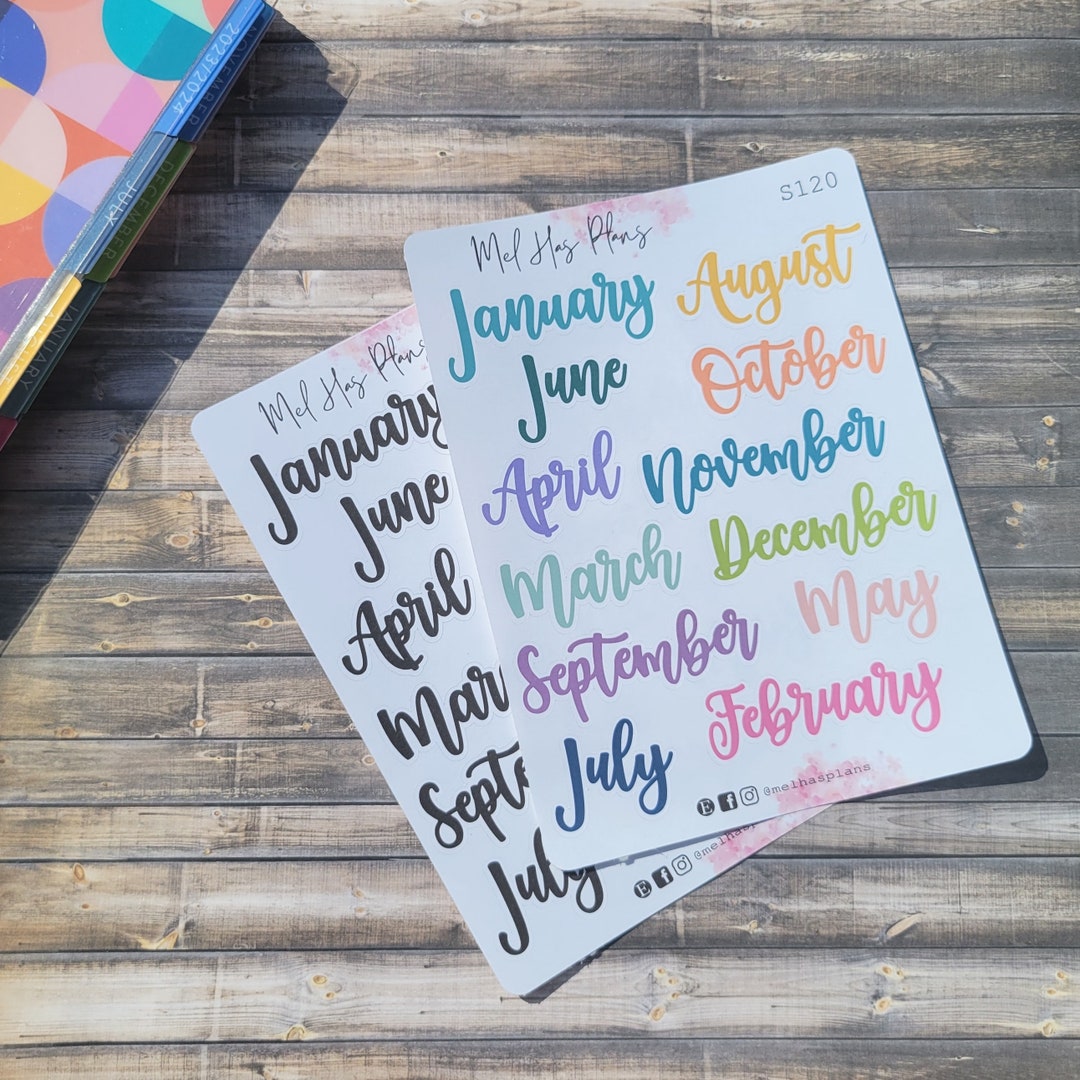 NOVEMBER
2023/2024
DECEMBER
JULY
JANUARY
Mel Has Plans
S120
January
August
June
October
April
November
March
December
September
May
July
February
@melhasplans
Mel Has Plans
January
June
April
Mar
Septe
July
@melhasp